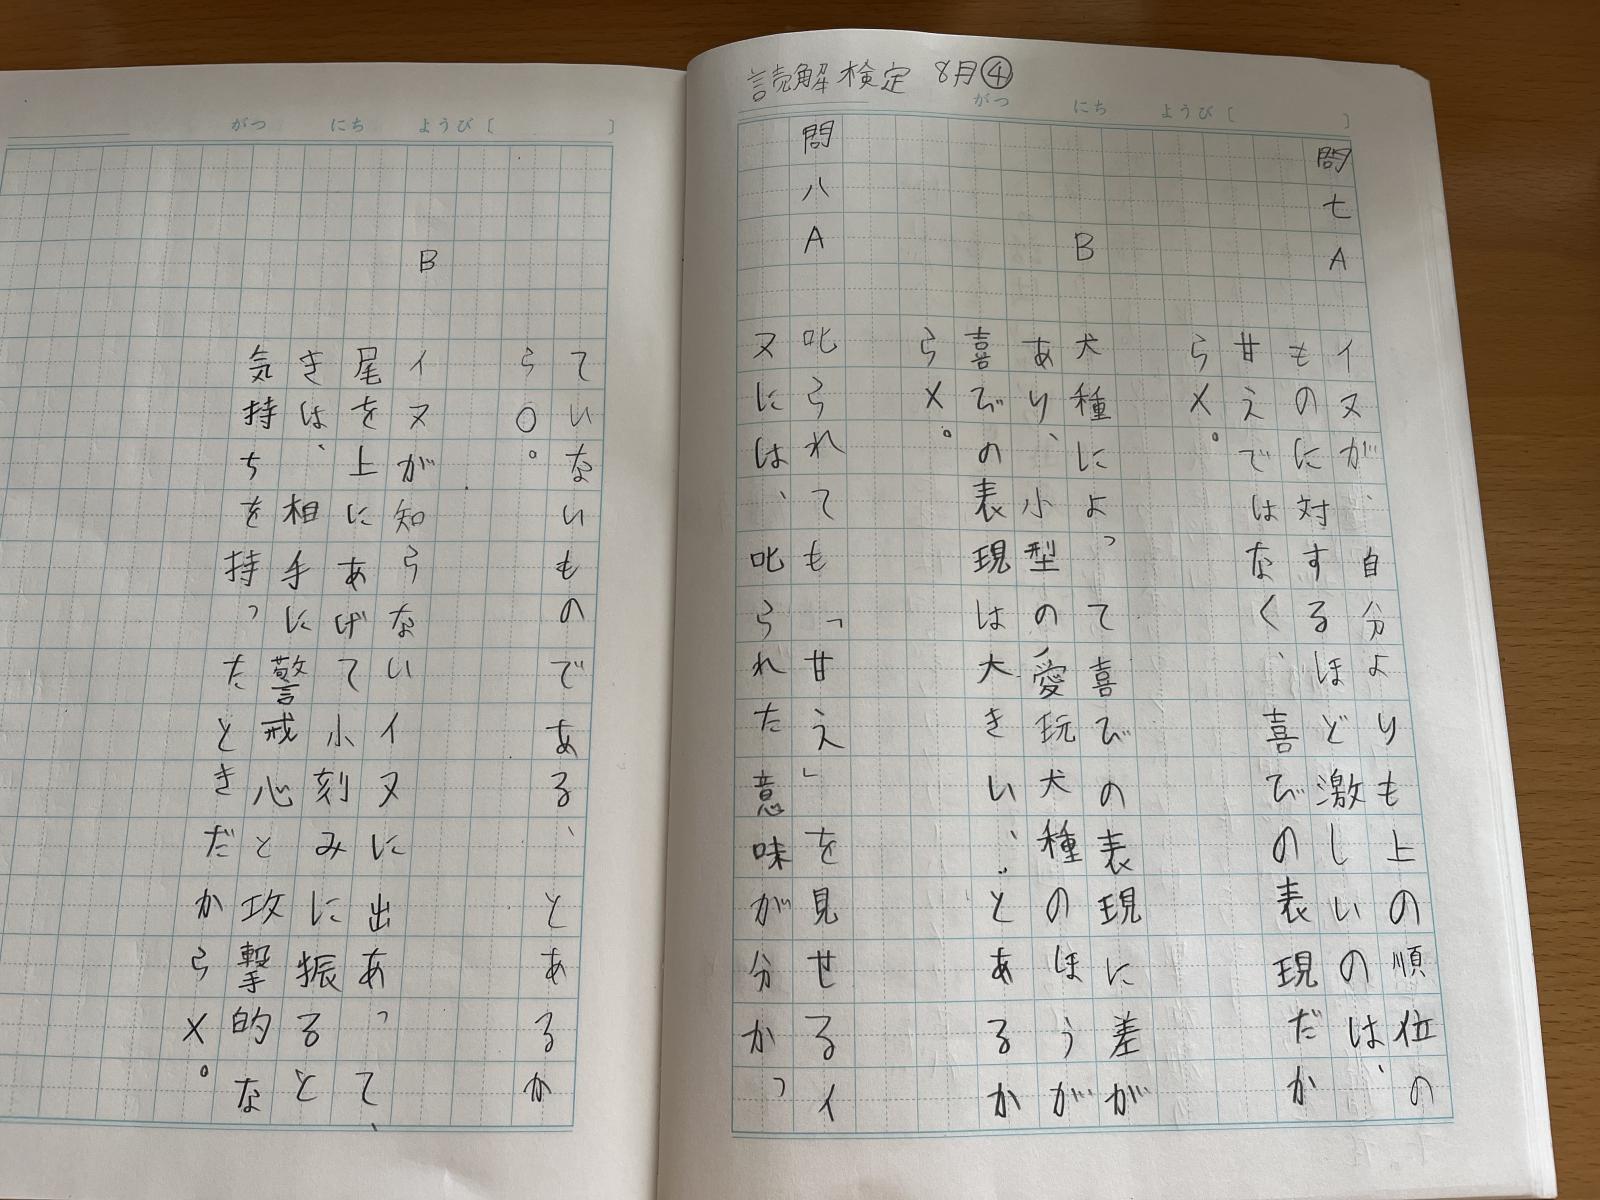 読解検定 8月④
がつ にち ようび[ ]
問七 A イヌが、自分よりも上の順位の
ものに対するほど激しいのは、
甘えではなく、喜びの表現だか
ら×。
B 犬種によって喜びの表現に差が
あり、小型の愛玩犬種のほうが
喜びの表現は大きい、…とあるか
ら×。
問八 A 叱られても「甘え」を見せるイ
ヌには、叱られた意味が分かっ
がつ にち ようび[ ]
ていないものである、とあるか
ら○。
B イヌが知らないイヌに出あって、
尾を上にあげて小刻みに振ると
きは、相手に警戒心と攻撃的な
気持ちを持ったときだから×。